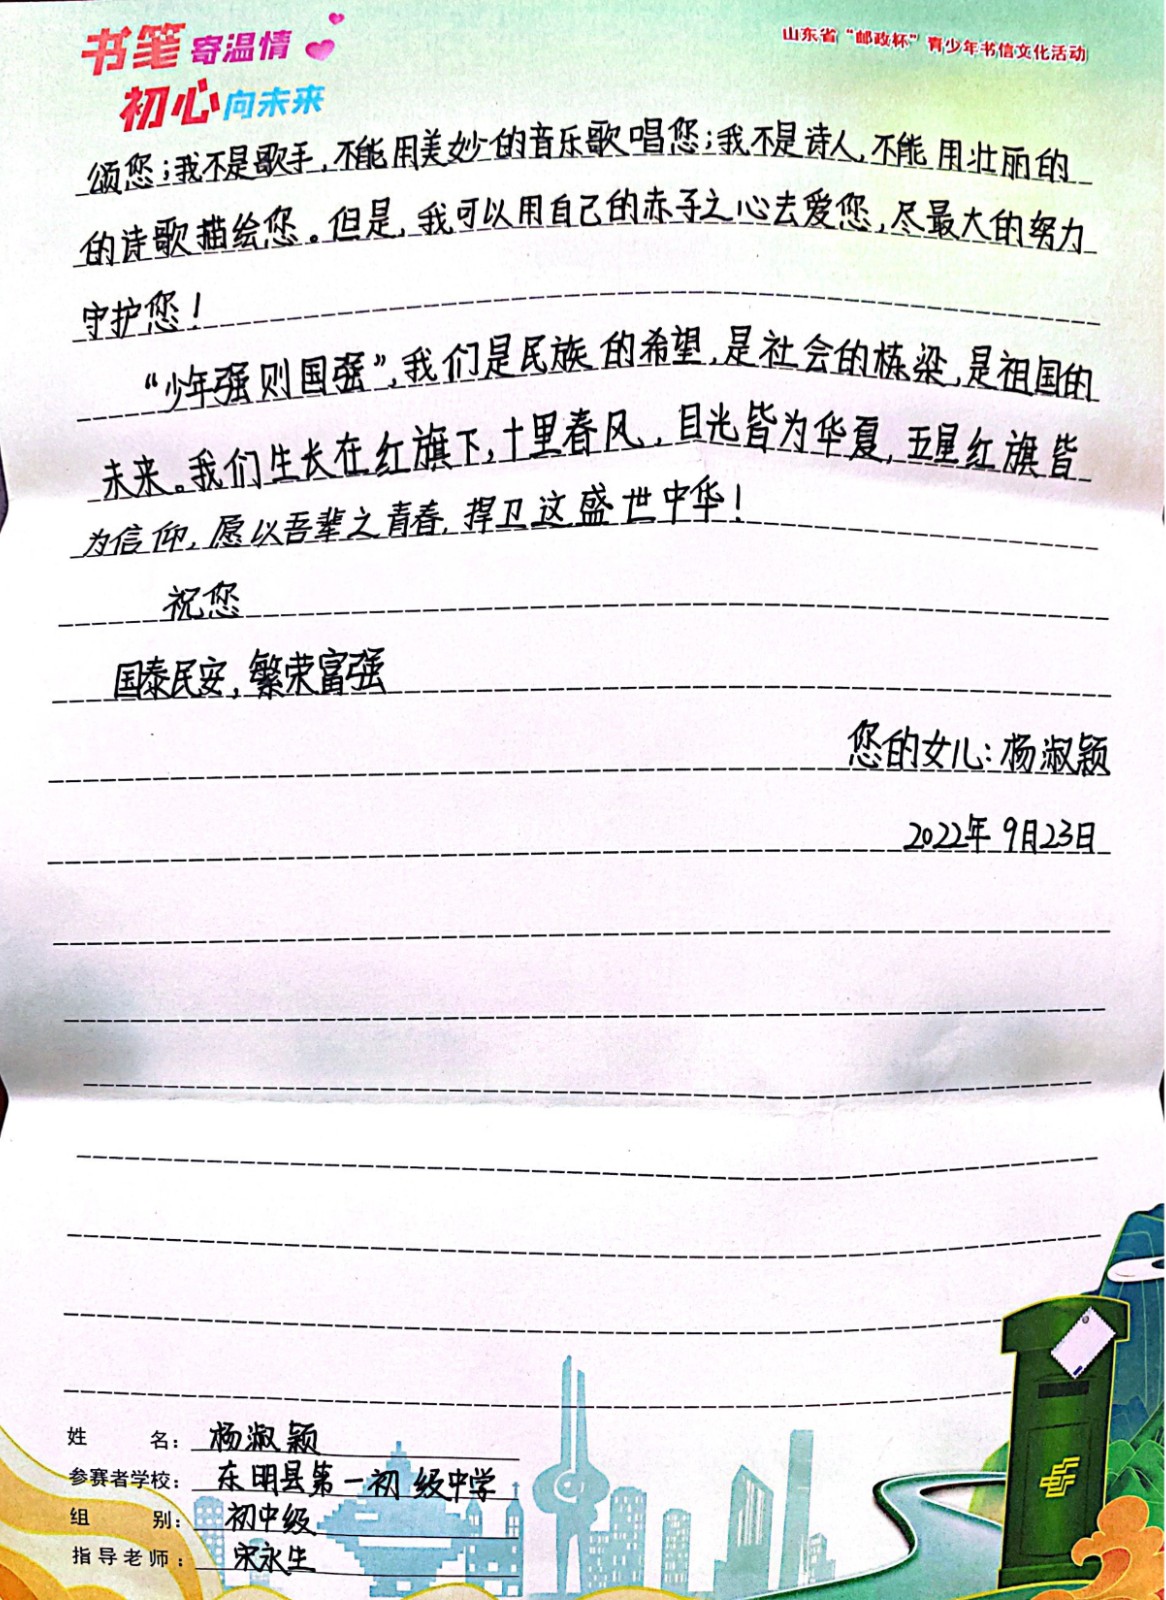 书笔寄温情
初心向未来
山东省“邮政杯”青少年书信文化活动
颂您；我不是歌手，不能用美妙的音乐歌唱您；我不是诗人，不能用壮丽的
的诗歌描绘您。但是，我可以用自己的赤子之心去爱您，尽最大的努力
守护您！
“少年强则国强”，我们是民族的希望，是社会的栋梁，是祖国的
未来。我们生长在红旗下，十里春风，目光皆为华夏，五星红旗皆
为信仰，愿以吾辈之青春，捍卫这盛世中华！
祝您
国泰民安，繁荣富强
您的女儿：杨淑颖
2022年9月23日
姓名：杨淑颖
参赛者学校：东明县第一初级中学
组别：初中级
指导老师：宋永生